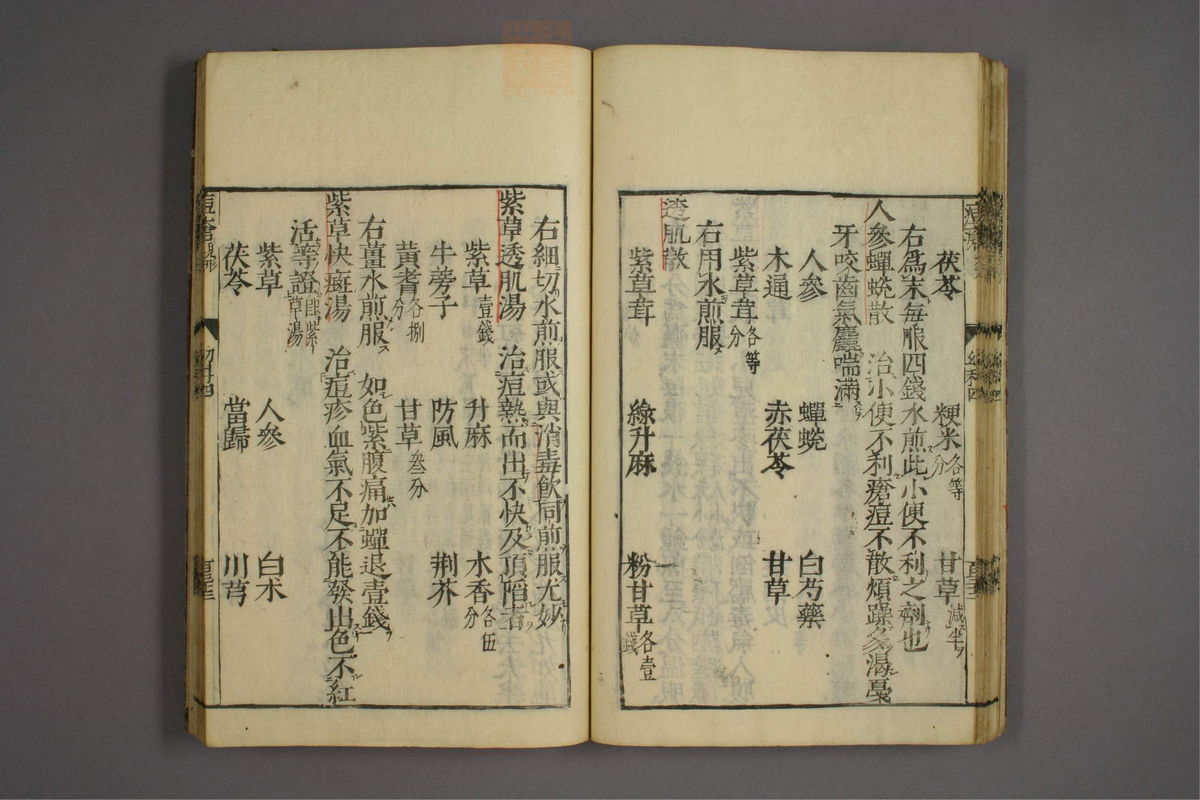 茯苓 粳米各等分 甘草減半
右爲末每服四錢水煎此小便不利之劑也
人參蟬蛻散 治小便不利瘡痘不散煩躁多渴戛
牙咬齒氣麤喘滿
人參 蟬蛻 白芍藥
木通 赤茯苓 甘草
紫草茸各等分
右用水煎服
透肌散
紫草茸 綠升麻 粉甘草各壹錢
右細切水煎服或與消毒飲同煎服尤妙
紫草透肌湯 治痘熱而出不快及頂陷者
紫草壹錢 升麻 木香各伍分
牛蒡子 防風 荆芥
黃耆各捌分 甘草叁分
右薑水煎服 如色紫腹痛加蟬退壹錢
紫草快癍湯 治痘疹血氣不足不能發出色不紅
活等證
紫草 人參 白朮
茯苓 當歸 川芎
痘瘡